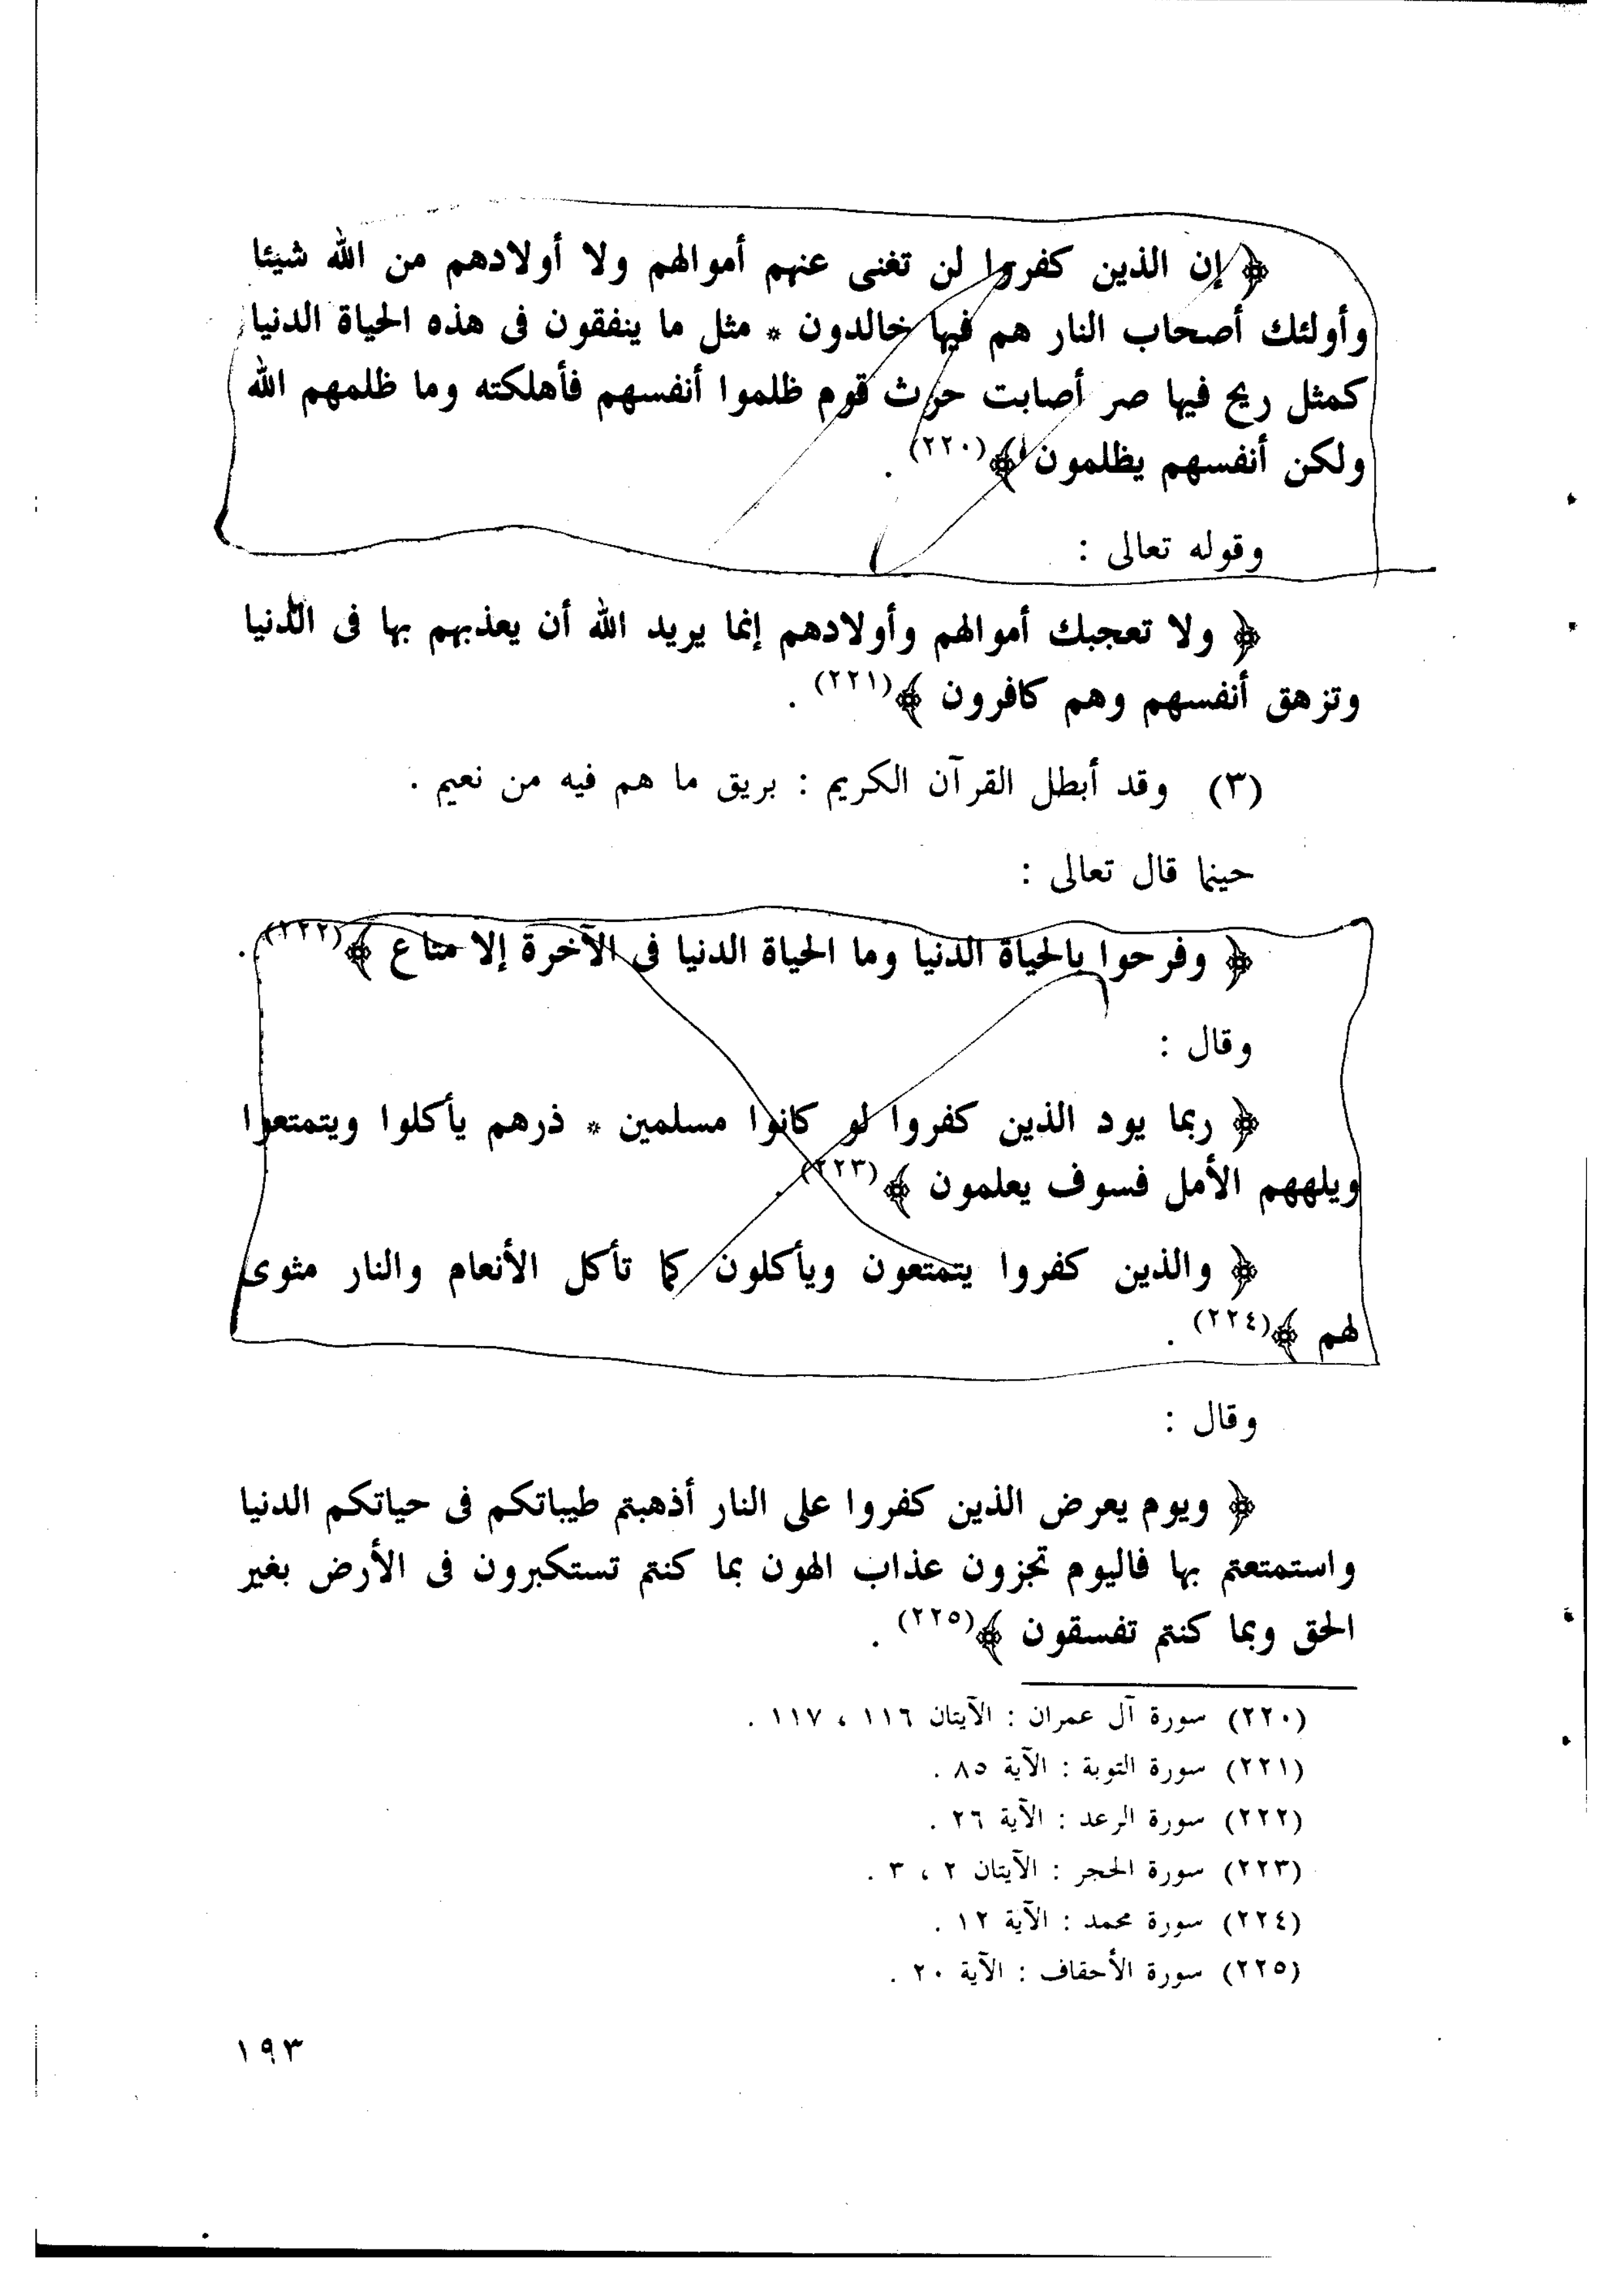 ﴿ إن الذين كفروا لن تغنى عنهم أموالهم ولا أولادهم من الله شيئا
وأولئك أصحاب النار هم فيها خالدون * مثل ما ينفقون فى هذه الحياة الدنيا
كمثل ريح فيها صر أصابت حرث قوم ظلموا أنفسهم فأهلكته وما ظلمهم الله
ولكن أنفسهم يظلمون ﴾(٢٢٠) .
وقوله تعالى :
﴿ ولا تعجبك أموالهم وأولادهم إنما يريد الله أن يعذبهم بها فى الدنيا
وتزهق أنفسهم وهم كافرون ﴾(٢٢١) .
(٣) وقد أبطل القرآن الكريم : بريق ما هم فيه من نعيم .
حينما قال تعالى :
﴿ وفرحوا بالحياة الدنيا وما الحياة الدنيا فى الآخرة إلا متاع ﴾(٢٢٢) .
وقال :
﴿ ربما يود الذين كفروا لو كانوا مسلمين * ذرهم يأكلوا ويتمتعوا
ويلههم الأمل فسوف يعلمون ﴾(٢٢٣) .
﴿ والذين كفروا يتمتعون ويأكلون كما تأكل الأنعام والنار مثوى
لهم ﴾(٢٢٤) .
وقال :
﴿ ويوم يعرض الذين كفروا على النار أذهبتم طيباتكم فى حياتكم الدنيا
واستمتعتم بها فاليوم تجزون عذاب الهون بما كنتم تستكبرون فى الأرض بغير
الحق وبما كنتم تفسقون ﴾(٢٢٥) .
(٢٢٠) سورة آل عمران : الآيتان ١١٦ ، ١١٧ .
(٢٢١) سورة التوبة : الآية ٨٥ .
(٢٢٢) سورة الرعد : الآية ٢٦ .
(٢٢٣) سورة الحجر : الآيتان ٢ ، ٣ .
(٢٢٤) سورة محمد : الآية ١٢ .
(٢٢٥) سورة الأحقاف : الآية ٢٠ .
١٩٣